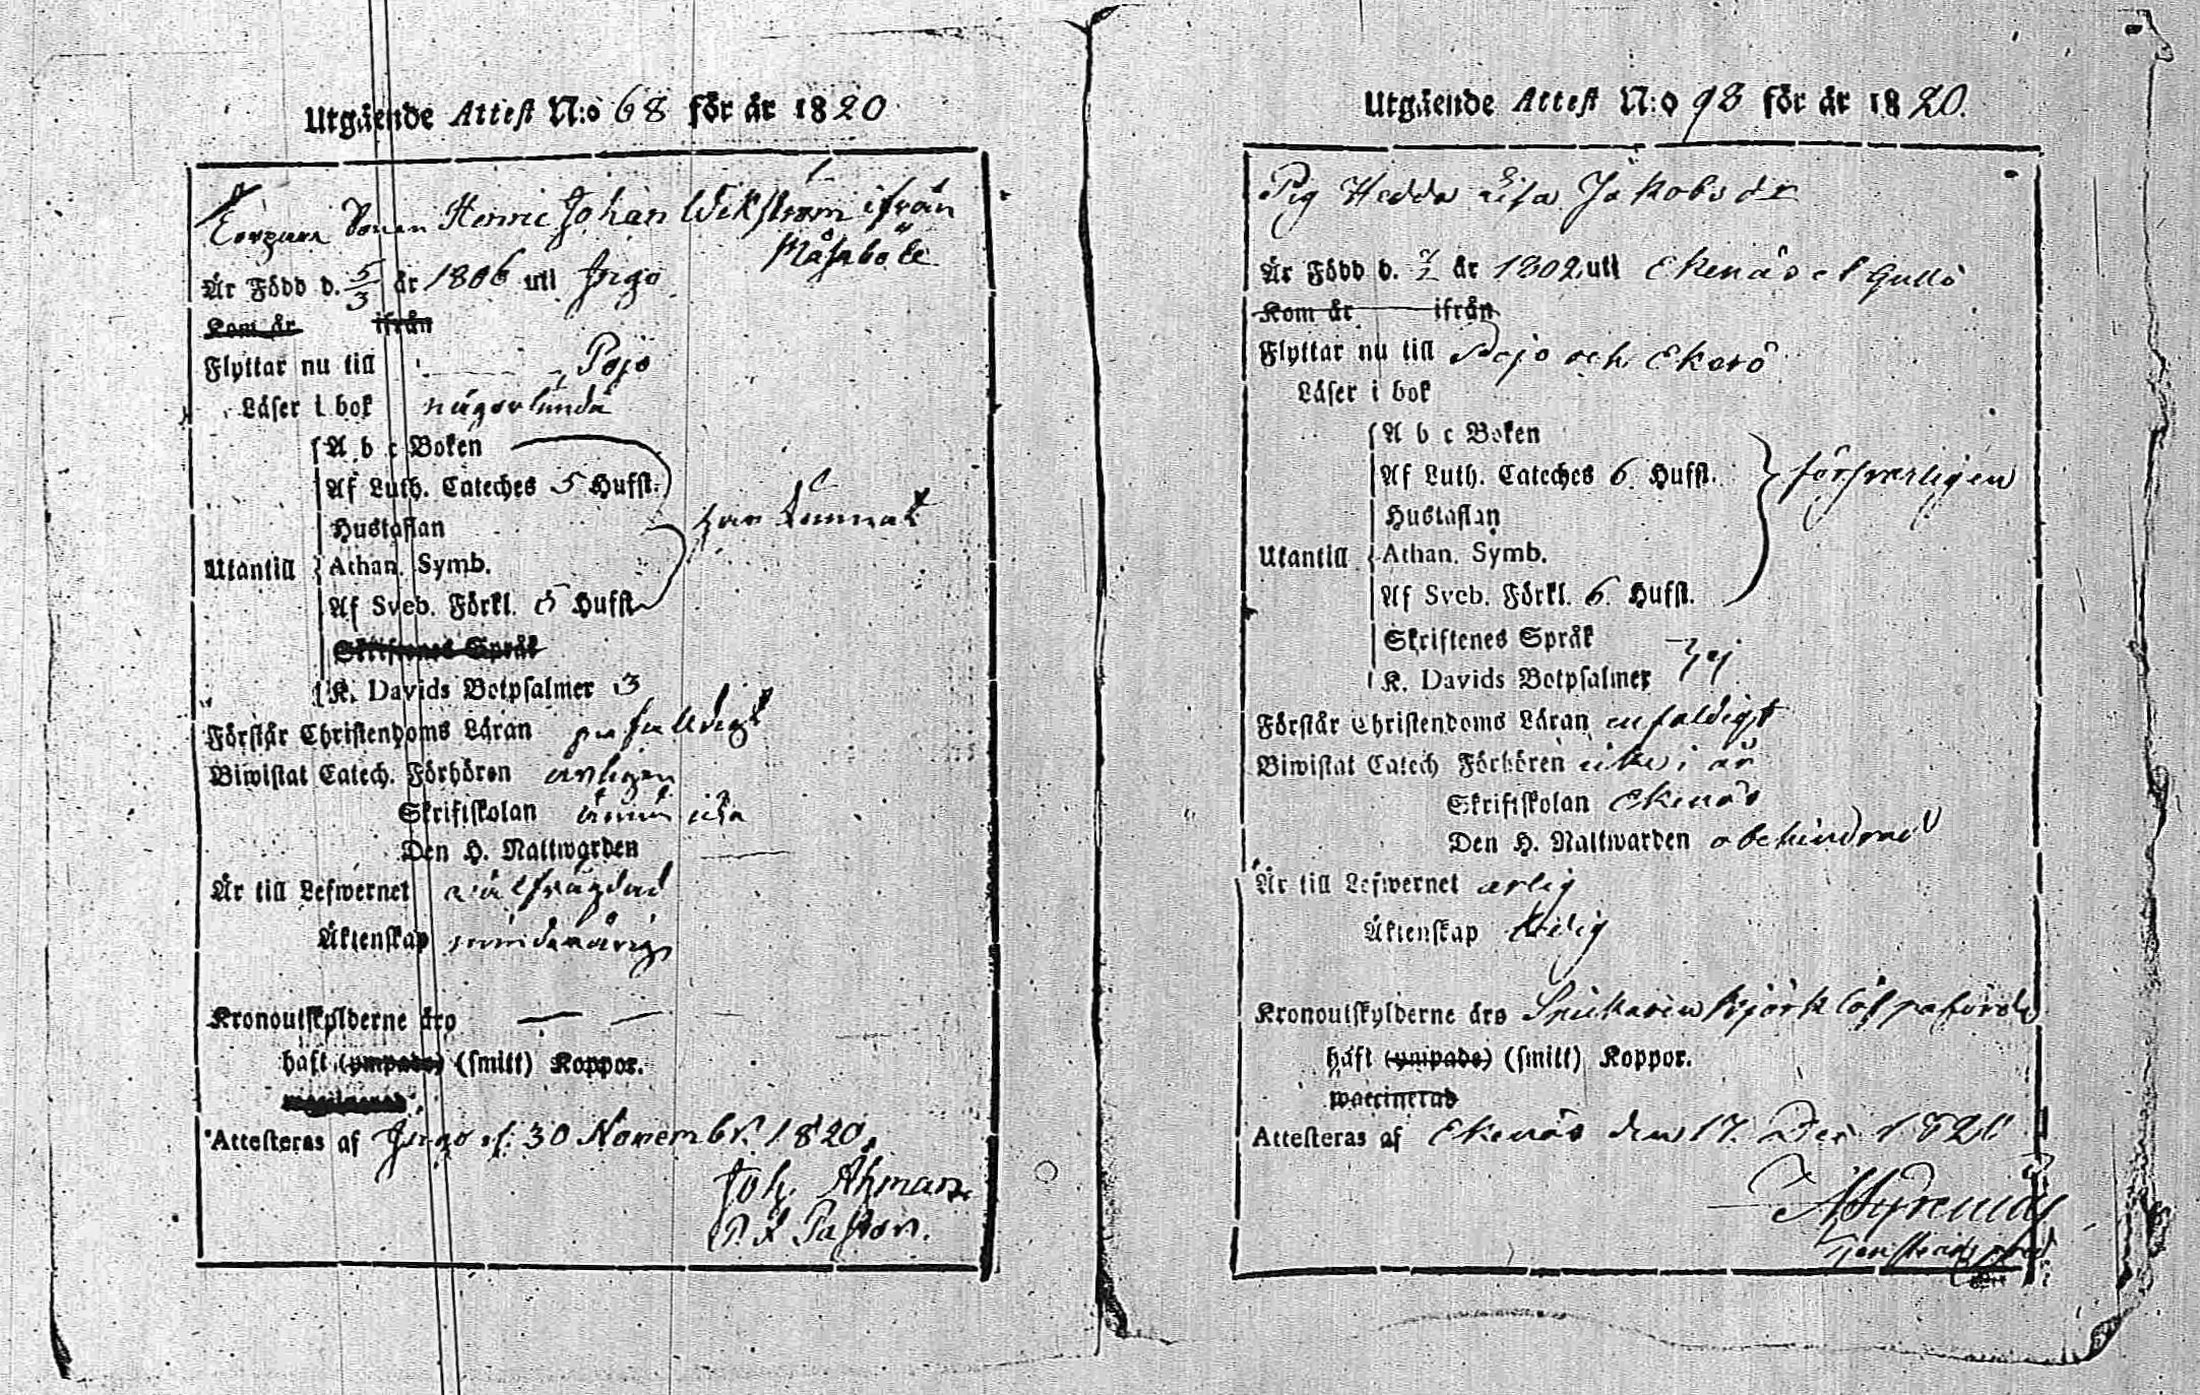 Utgående Attest N:o 68 för år 1820
Sonen Henric Johan Wikström ifrån
Måsaböle
Är Född d. 5/3 år 1806 uti Ingo
Kom år ifrån
Flyttar nu till Pojo
Läser i bok någorlunda
A b c Boken
Af Luth. Cateches 5 Hufst.
Hustaflan
Utantill Athan. Symb.
Af Sveb. Förkl. 5 Hufst.
Skriftenes Språk
K. Davids Botpsalmer 3
Förstår Christendoms Läran
Biwistat Catech. Förhören årligen
Skriftskolan ännu icke
Den H. Nattwarden
Är till Lefwernet välfrägdad
Äktenskap minderårig
Kronoutskylderne äro — —
haft (ympade) (smitt) Koppor.
waccinerad
Attesteras af Ingo d. 30 Novembr. 1820.
Joh. Åhman
Pastor.
Utgående Attest N:o 98 för år 1820.
Pig Hedda Lisa Jakobs dr
Är Född d. år 1802 uti Ekenäs
Kom år ifrån
Flyttar nu till Pojo och Ekerö
Läser i bok
A b c Boken
Af Luth. Cateches 6 Hufst. försvarligen
Hustaflan
Utantill Athan. Symb.
Af Sveb. Förkl. 6. Hufst.
Skriftenes Språk
K. Davids Botpsalmer
Förstår Christendoms Läran enfaldigt
Biwistat Catech Förhören i år
Skriftskolan Ekenäs
Den H. Nattwarden obehindrad
Är till Lefwernet ärlig
Äktenskap ledig
Kronoutskylderne äro Snickaren Björklöf påförde
haft (ympade) (smitt) Koppor.
waccinerad
Attesteras af Ekenäs den 17. Dec 1820